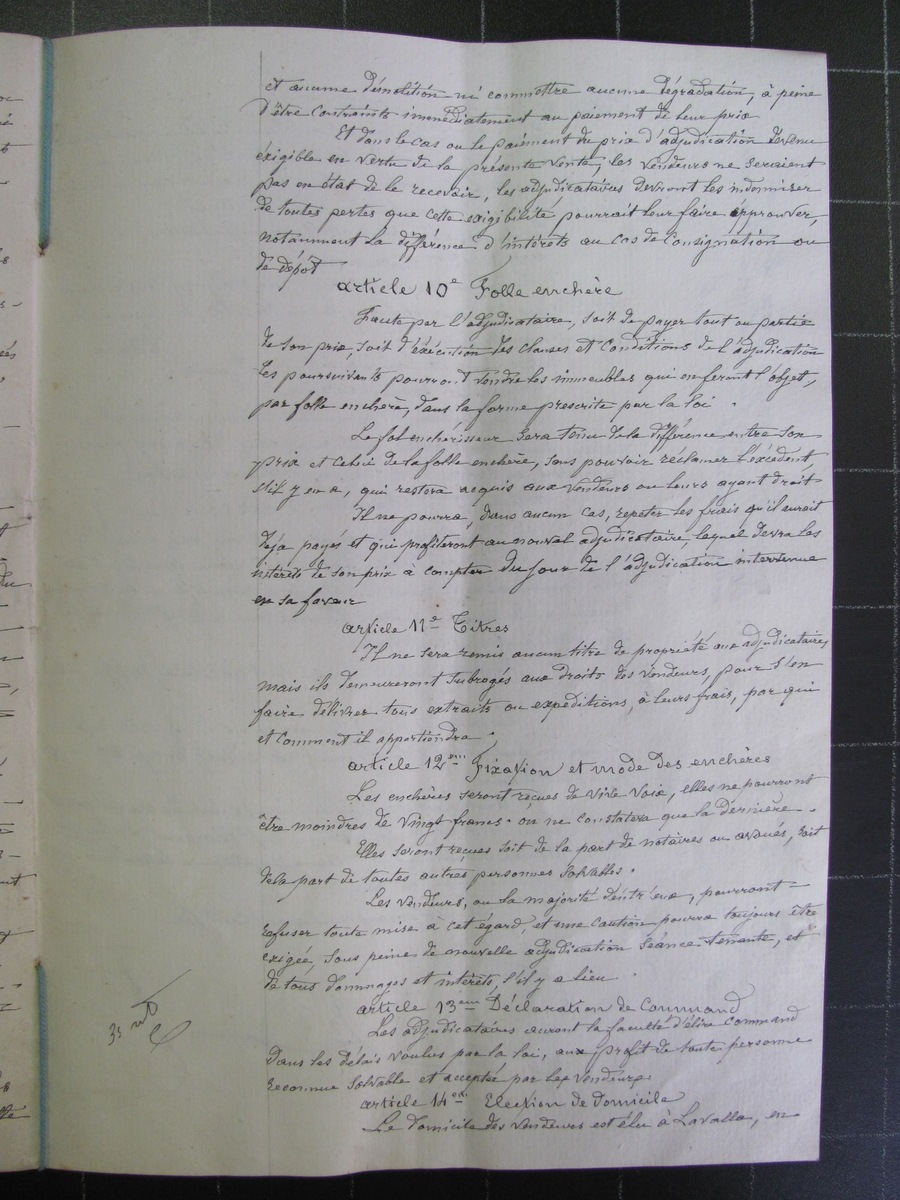 et aucune démolition ni commettre aucune dégradation, à peine
d'être contraints immédiatement au paiement de leur prix
Et dans le cas ou le paiement du prix d'adjudication devenu
éxigible en vertu de la présente vente, les vendeurs ne seraient
pas en état de le recevoir, les adjudicataires devront les indemniser
de toutes pertes que cette exigibilité pourrait leur faire éprouver,
notamment la différence d'intérêts au cas de Consignation ou
de dépôt
article 10e Folle enchère
Faute par l'adjudicataire, soit de payer tout ou partie
de son prix, soit d'éxécution des clauses et Conditions de l'adjudication
les poursuivants pourront vendre les immeubles qui en feront l'objet,
par folle enchère, dans la forme prescrite par la loi .
Le fol enchérisseur sera tenu de la différence entre son
prix et celui de la folle enchère, sans pouvoir réclamer l'éxcédent,
s'il y en a, qui restera acquis aux vendeurs ou leurs ayant droit
Il ne pourra, dans aucun cas, répéter les frais qu'il aurait
déja payés et qui profiteront au nouvel adjudicataire, lequel devra les
intérêts de son prix à compter du jour de l'adjudication intervenue
en sa faveur
article 11e Titres
Il ne sera remis aucun titre de propriété aux adjudicataires,
mais ils demeureront subrogés aux droits des vendeurs, pour s'en
faire délivrer tous extraits ou expéditions, à leurs frais, par qui
et comment il appartiendra .
article 12em Fixation et mode des enchères
Les enchères seront reçues de vive voix, elles ne pourront
être moindres de vingt francs. on ne constatera que la dernière .
Elles seront reçues soit de la part de notaires ou avoués, soit
de la part de toutes autres personnes solvables .
Les vendeurs, ou la majorité d'entr'eux, pourront
refuser toute mise à cet égard, et une caution pourra toujours être
exigée, sous peine de nouvelle adjudication séance tenante, et
de tous dommages et intérêts, s'il y a lieu .
article 13em Déclaration de Command
Les adjudicataires auront la faculté d'élire command
dans les délais voulus par la loi, aux profit de toute personne
reconnue solvable et acceptée par les vendeurs.
article 14em Election de domicile
Le domicile des vendeurs est élu à Lavalla, en